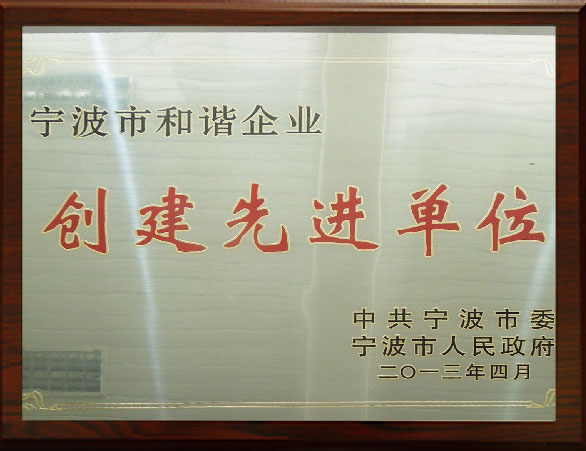 宁波市和谐企业
创建先进单位
中共宁波市委
宁波市人民政府
二〇一三年四月